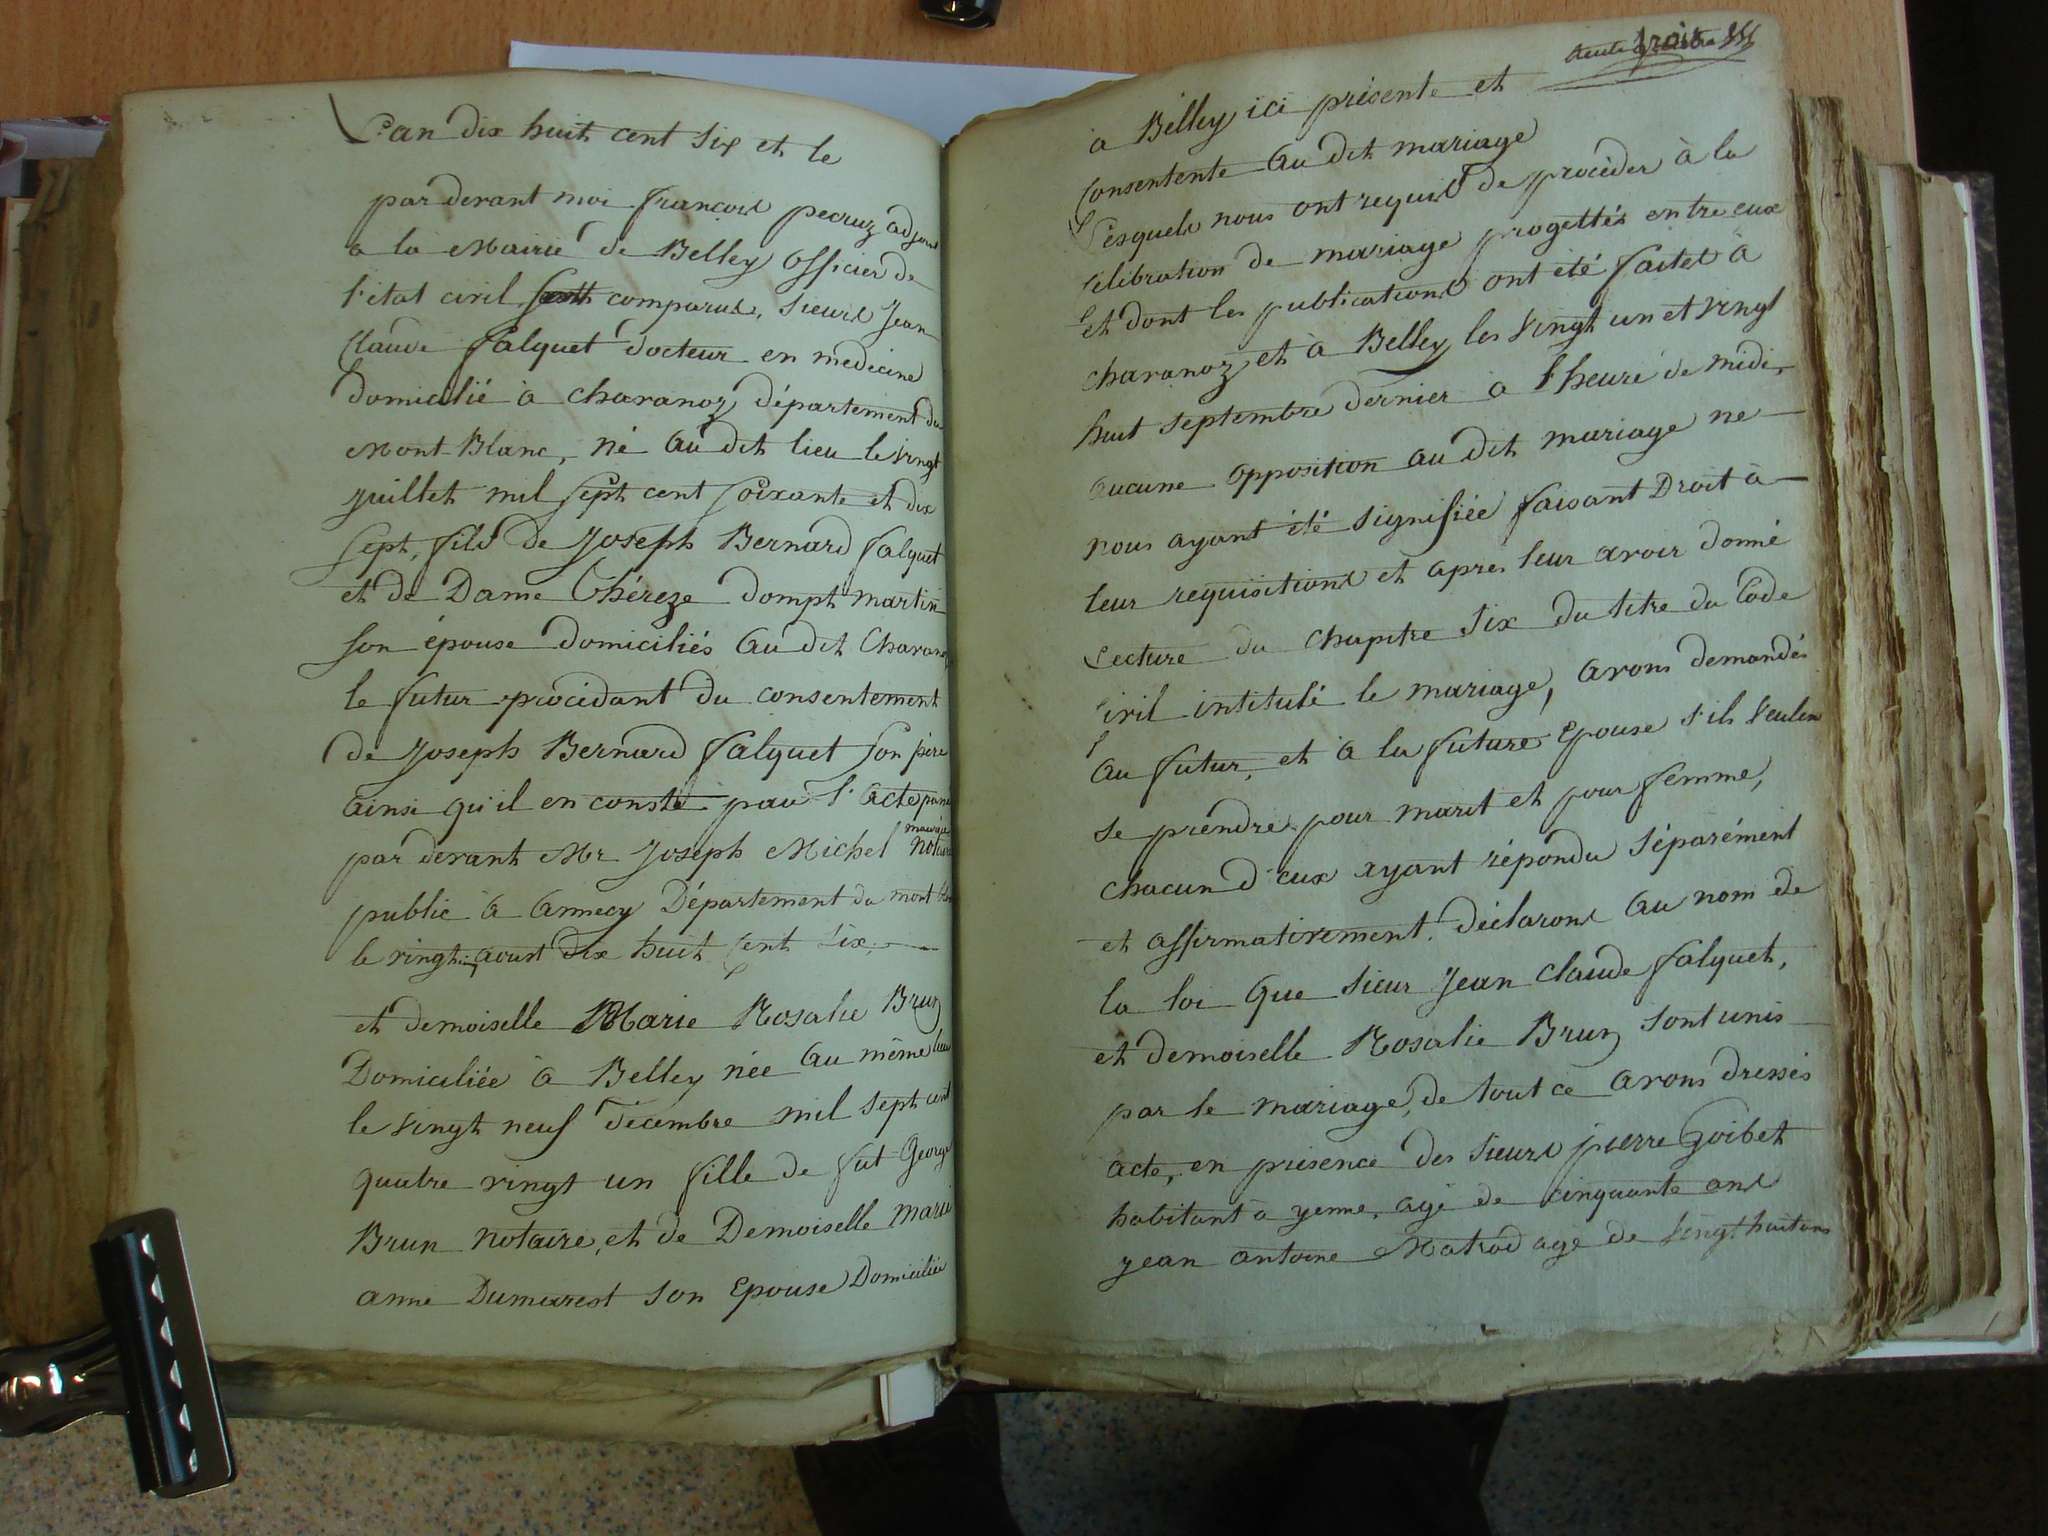 L'an dix huit cent six et le
par devant moi françois pecruz adjoint
a la Mairie de Belley officier de
l'etat civil sont comparus, sieurs Jean
Claude falquet docteur en medecine
domicilié à charanoz département du
Mont-Blanc, né au dit lieu le vingt
juillet mil sept cent soixante et dix
sept, fils de Joseph Bernard falquet
et de Dame thérèze dompt martin
son épouse domiciliés au dit Charanoz
le futur procédant du consentement
de Joseph Bernard falquet son père
ainsi qu'il en conste par l'acte passé
par devant Mr Joseph Michel maurice notaire
public à annecy Département du mont blanc
le vingt aoust dix huit cent six.
et demoiselle Marie Rosalie Brun
Domiciliée à Belley née au même lieu
le vingt neuf decembre mil sept cent
quatre vingt un fille de fut George
Brun notaire, et de Demoiselle marie
anne Dumarest son Epouse Domiciliée
trente trois
a Belley ici présente et
consentente au dit mariage
Lesquels nous ont requis de procèder à la
célébration de mariage progettés entre eux
et dont les publications ont été faites à
charanoz et à Belley les vingt un et vingt
huit septembre dernier a l'heure de midi,
aucune opposition au dit mariage ne
nous ayant été signifiée faisant Droit à
leur requisitions et après leur avoir donné
Lecture du chapitre six du titre du Code
Civil intitulé le mariage, avons demandés
au futur, et à la future Epouse s'ils veulent
se prendre pour marit et pour femme,
chacun d'eux ayant répondu séparément
et affirmativement. déclarons au nom de
la loi que sieur Jean Claude falquet,
et demoiselle Rosalie Brun sont unis
par le mariage, de tout ce avons dressés
acte, en présence des sieurs pierre Goibet
habitant à yenne, agé de cinquante ans
jean antoine Matrod age de vingt huit ans